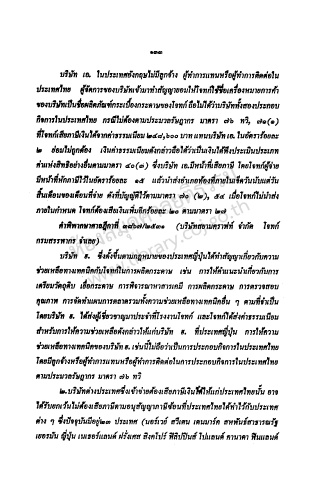 ๑๓๓
บริษัท เอ. ในประเทศอังกฤษไม่มีลูกจ้าง ผู้ทำการแทนหรือผู้ทำการติดต่อใน
ประเทศไทย ผู้จัดการของบริษัทเข้ามาทำสัญญายอมให้โจทก์ใช้ชื่อเครื่องหมายการค้า
ของบริษัทเป็นชื่อผลิตภัณฑ์กระเบื้องกระดาษของโจทก์ ถือไม่ได้ว่าบริษัททั้งสองประกอบ
กิจการในประเทศไทย กรณีไม่ต้องตามประมวลรัษฎากร มาตรา ๗๖ ทวิ, ๗๐(๑)
ที่โจทก์เสียภาษีเงินได้จากค่าธรรมเนียม ๒๔๘,๖๐๐ บาท แทนบริษัท เอ. ในอัตราร้อยละ
๒ ย่อมไม่ถูกต้อง เงินค่าธรรมเนียมดังกล่าวถือได้ว่าเป็นเงินได้พึงประเมินประเภท
ค่าแห่งลิขสิทธิ์อย่างอื่นตามมาตรา ๔๐(๓) ซึ่งบริษัท เอ.มีหน้าที่เสียภาษี โดยโจทก์ผู้จ่าย
มีหน้าที่หักภาษีไว้ในอัตราร้อยละ ๑๕ แล้วนำส่งอำเภอท้องที่ภายในเจ็ดวันนับแต่วัน
สิ้นเดือนของเดือนที่จ่าย ดังที่บัญญัติไว้ตามมาตรา ๗๐ (๒), ๕๔ เมื่อโจทก์ไม่นำส่ง
ภายในกำหนด โจทก์ต้องเสียเงินเพิ่มอีกร้อยละ ๒๐ ตามมาตรา ๒๗
คำพิพากษาศาลฎีกาที่ ๑๓๖๗/๒๕๑๑ (บริษัทสยามคราฟท์ จำกัด โจทก์
กรมสรรพากร จำเลย)
บริษัท ฮ. ซึ่งตั้งขึ้นตามกฎหมายของประเทศญี่ปุ่นได้ทำสัญญาเกี่ยวกับความ
ช่วยเหลือทางเทคนิคกับโจทก์ในการผลิตกระดาษ เช่น การให้คำแนะนำเกี่ยวกับการ
เตรียมวัตถุดิบ เยื่อกระดาษ การพิจารณาหาสารเคมี การผลิตกระดาษ การตรวจสอบ
คุณภาพ การจัดทำแผนการตลาดรวมทั้งความช่วยเหลือทางเทคนิคอื่น ๆ ตามที่จำเป็น
โดยบริษัท ฮ. ได้ส่งผู้เชี่ยวชาญมาประจำที่โรงงานโจทก์ และโจทก์ได้ส่งค่าธรรมเนียม
สำหรับการให้ความช่วยเหลือดังกล่าวให้แก่บริษัท ฮ. ที่ประเทศญี่ปุ่น การให้ความ
ช่วยเหลือทางเทคนิคของบริษัท ฮ. เช่นนี้ไม่ถือว่าเป็นการประกอบกิจการในประเทศไทย
โดยมีลูกจ้างหรือผู้ทำการแทนหรือผู้ทำการติดต่อในการประกอบกิจการในประเทศไทย
ตามประมวลรัษฎากร มาตรา ๗๖ ทวิ
๒.บริษัทต่างประเทศซึ่งเข้าข่ายต้องเสียภาษีเงินได้ให้แก่ประเทศไทยนั้น อาจ
ได้รับยกเว้นไม่ต้องเสียภาษีตามอนุสัญญาภาษีซ้อนที่ประเทศไทยได้ทำไว้กับประเทศ
ต่าง ๆ ซึ่งปัจจุบันมีอยู่๒๓ ประเทศ (นอร์เวย์ สวีเดน เดนมาร์ค สหพันธ์สาธารณรัฐ
เยอรมัน ญี่ปุ่น เนเธอร์แลนด์ ฝรั่งเศส สิงคโปร์ ฟิลิปปินส์ โปแลนด์ คานาดา ฟินแลนด์